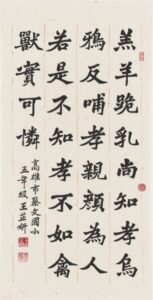 羔羊跪乳尚知孝烏
鴉反哺孝親顏為人
若是不知孝不如禽
獸實可憐
高雄市蔡文國小
五年級王